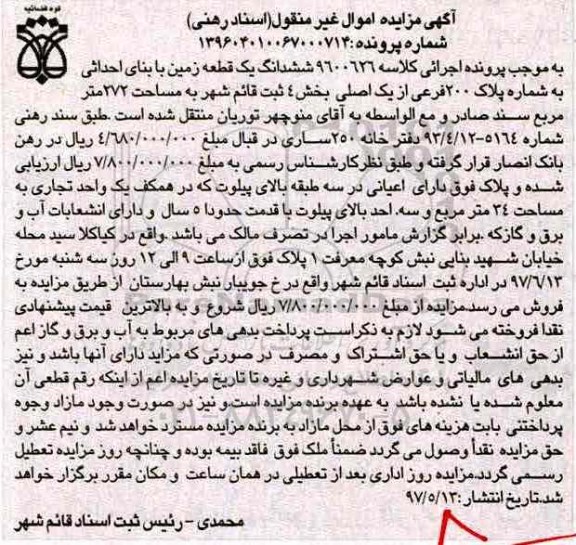 قوه قضائیه
آگهی مزایده اموال غیر منقول(اسناد رهنی)
شماره پرونده:۱۳۹۶۰۴۰۱۰۰۶۷۰۰۰۷۱۴
به موجب پرونده اجرائی کلاسه ۹۶۰۰۶۲۶ ششدانگ یک قطعه زمین با بنای احداثی
به شماره پلاک ۲۰۰فرعی از یک اصلی بخش۴ ثبت قائم شهر به مساحت ۲۷۲متر
مربع سند صادر و مع الواسطه به آقای منوچهر توریان منتقل شده است .طبق سند رهنی
شماره ۵۱۶۴-۹۲/۴/۱۲ دفتر خانه ۲۵۰ساری در قبال مبلغ ۴/۶۸۰/۰۰۰/۰۰۰ ریال در رهن
بانک انصار قرار گرفته و طبق نظر کارشناس رسمی به مبلغ ۷/۸۰۰/۰۰۰/۰۰۰ ریال ارزیابی
شده و پلاک فوق دارای اعیانی در سه طبقه بالای پیلوت که در همکف یک واحد تجاری به
مساحت ۳۴ متر مربع و سه. احد بالای پیلوت با قدمت حدودا ۵ سال و دارای انشعابات آب و
برق و گازکه .برابر گزارش مامور اجرا در تصرف مالک می باشد .واقع در کیاکلا سید محله
خیابان شهید بنایی نبش کوچه معرفت ۱ پلاک فوق ازساعت ۹ الی ۱۲ روز سه شنبه مورخ
۹۷/۶/۱۳ در اداره ثبت اسناد قائم شهر واقع در خ جویبار نبش بهارستان از طریق مزایده به
فروش می رسد.مزایده از مبلغ ۷/۸۰۰/۰۰۰/۰۰۰ ریال شروع و به بالاترین قیمت پیشنهادی
نقدا فروخته می شود لازم به ذکر است پرداخت بدهی های مربوط به آب و برق و گاز اعم
از حق انشعاب و یا حق اشتراک و مصرف در صورتی که مزاید دارای آنها باشد و نیز
بدهی های مالیاتی و عوارض شهرداری و غیره تا تاریخ مزایده اعم از اینکه رقم قطعی آن
معلوم شده یا نشده باشد به عهده برنده مزایده است و نیز در صورت وجود مازاد وجوه
پرداختنی بابت هزینه های فوق از محل مازاد به برنده مزایده مسترد خواهد شد و نیم عشر و
حق مزایده نقدا وصول می گردد ضمنأ ملک فوق فاقد بیمه بوده و چنانچه روز مزایده تعطیل
رسمی گردد.مزایده روز اداری بعد از تعطیلی در همان ساعت و مکان مقرر برگزار خواهد
شد.تاریخ انتشار :۹۷/۵/۱۳
محمدی – رئیس ثبت اسناد قائم شهر